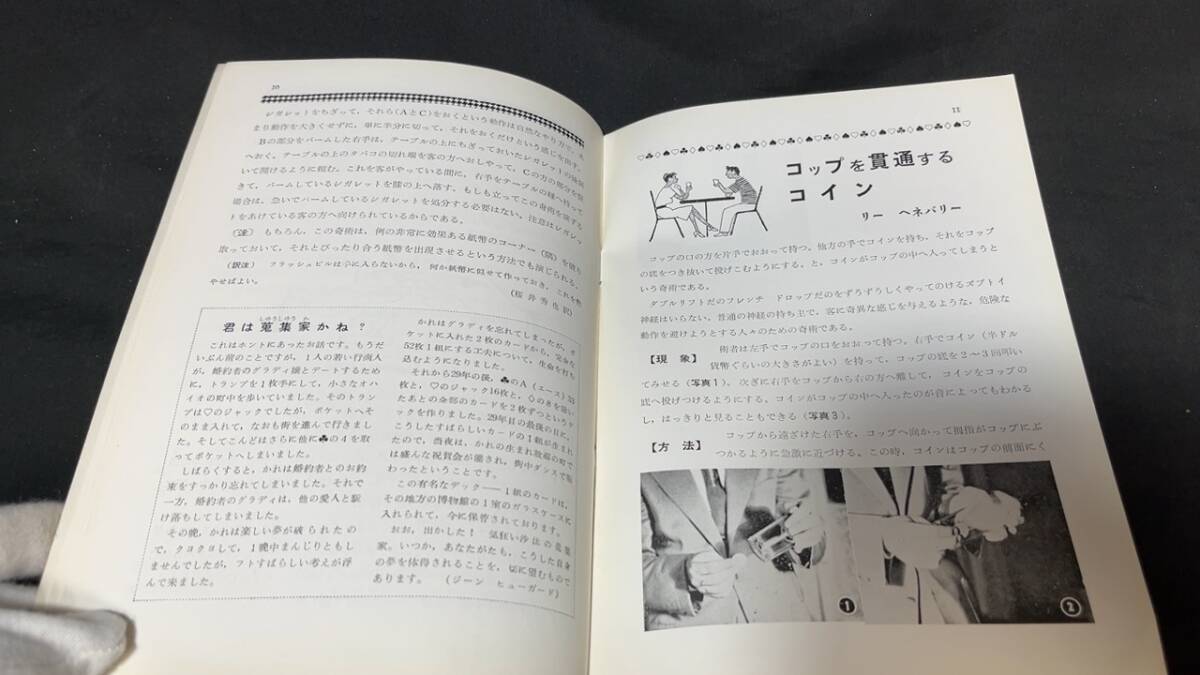 10
レガレットをちぎって，それら（AとC）をおくという動作は自然なやり方で，あ
まり動作を大きくせずに，単に半分に切って，それをおくだけという感じを出す。
Bの部分をパームした右手は，テーブルの上にもぎっておいた
へおく。テーブルの上のタバコの切れ端を客の方へおしやって，Cの方の部分を
いて開けるように頼む。これを客がやっている間に，右手をテーブルの
きて，パームしているレガレットを膝の上へ落す。もしも立ってこの奇術を演ずる
場合は，急いでパームしているレガレットを処分する必要はない。注意はレガレッ
トをあけている客の方へ向けられているからである。
もちろん，この奇術は，例の非常に効果ある紙幣のコーナー（隅）を破り
取っておいて，それとぴったり合う紙幣を出現させるという方法でも演じられる。
（訳注） フラッシュビルは手に入らないから，何か紙幣に似せて作っておき，これを
やせばよい。
（桜井 訳）
しゅうしゅう か
君は蒐集家かね？
これはホントにあったお話です。もうだ
いぶん前のことですが，1人の若い行商人
が，婚約者のグラディ嬢とデートするために，
トランプを1枚手にして，小さなオハ
イオの町中を歩いていました。そのトラン
プは♡のジャックでしたが，ポケットへそ
のまま入れて，なおも街を進んで行きまし
た。そしてこんどはさらに他に♣の4を取
ってポケットへしまいました。
しばらくすると，かれは婚約者とのお約
束をすっかり忘れてしまいました。それで
一方，婚約者のグラディは，他の愛人と駆
け落ちしてしまいました。
その晩，かれは楽しい夢が破られたの
で，クヨクヨして，1晩中まんじりともし
ませんでしたが，フトすばらしい考えが浮
んで来ました。
かれはグラディを忘れてしまったが，ポ
ケットに入れた2枚のカードから，完全な
52枚1組にする工夫について，生命を打ち
込むようになりました。
それから29年の後，♣のA（エース）53
枚と，♡のジャック16枚と，◇の8を除い
たあとの全部のカードを2枚ずつというデ
ックを作りました。29年目の最後の日に，
こうしたすばらしいカードの1組が生まれ
たので，当夜は，かれの生まれ故郷の町で
は盛んな祝賀会が催され，街中ダンスで賑
わったということです。
この有名なデック——1組のカードは，
その地方の博物館の1室のガラスケースに
入れられて，今に保管されております。
おお，出かした！ 気狂い沙汰の蒐集
家。いつか，あなたがたも，こうした自身
の夢を体得されることを，切に望むもので
あります。 （ジーン ヒューガード）
11
コップを貫通する
コイン
リー ヘネバリー
コップの口の方を片手でおおって持つ。他方の手でコインを持ち，それをコップ
の底をつき抜いて投げこむようにする。と，コインがコップの中へ入ってしまうと
いう奇術である。
ダブルリフトだのフレンチ ドロップだのをずうずうしくやってのけるズブトイ
神経はいらない。普通の神経の持ち主で，客に奇異な感じを与えるような，危険な
動作を避けようとする人々のための奇術である。
【現 象】 術者は左手でコップの口をおおって持つ。右手でコイン（半ドル
貨幣ぐらいの大きさがよい）を持って，コップの底を2〜3回叩い
てみせる（写真1）。次ぎに右手をコップから右の方へ離して，コインをコップの
底へ投げつけるようにする。コインがコップの中へ入ったのが音によってもわかる
し，はっきりと見ることもできる（写真3）。
【方 法】 コップから遠ざけた右手を，コップへ向かって拇指がコップにぶ
つかるように急激に近づける。この時，コインはコップの側面にく
1
2